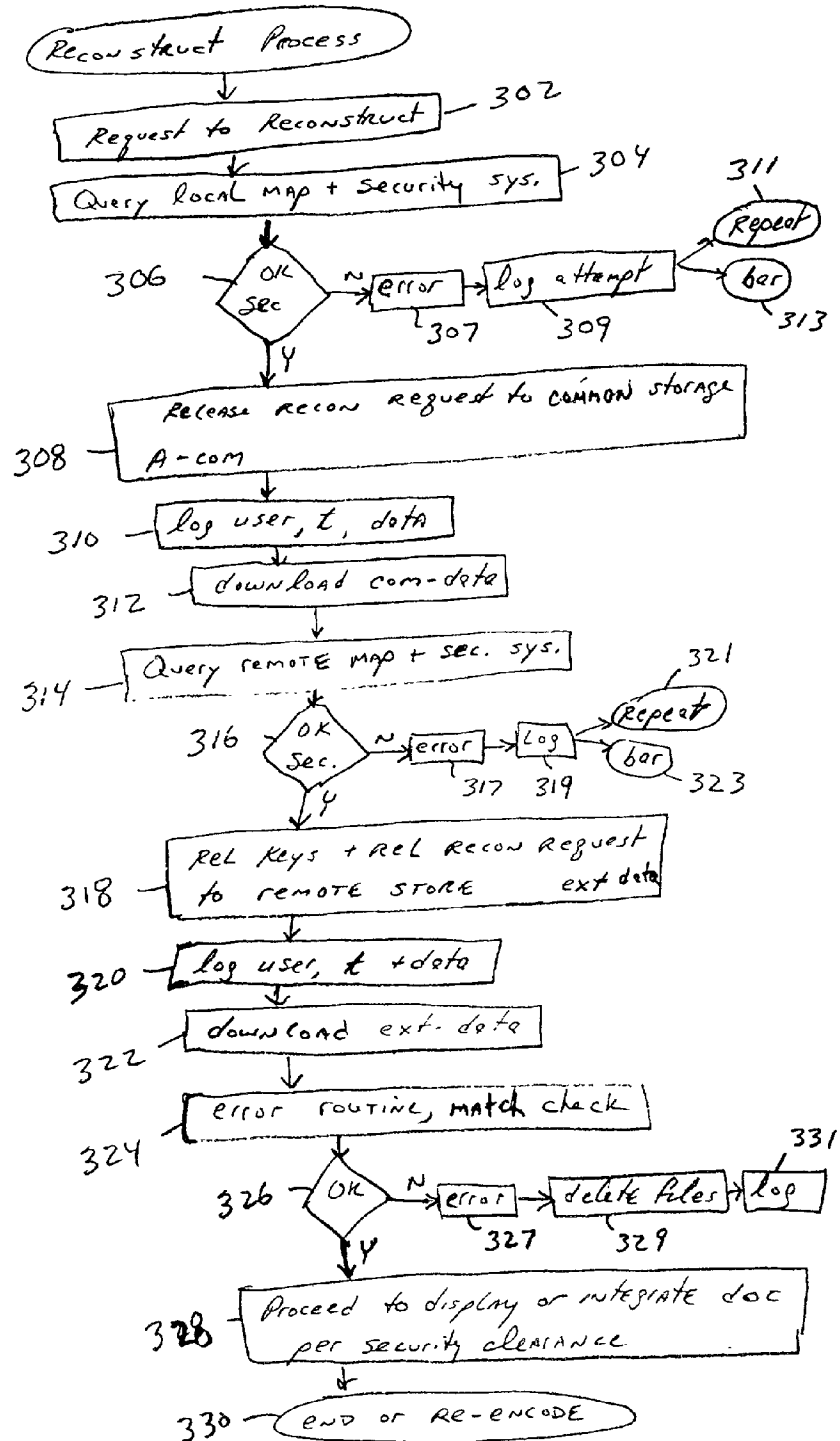 Reconstruct Process
302
Request to Reconstruct
304
Query local MAP + Security sys.
311
Repeat
306
OK
Sec
N
error
log attempt
bar
307
309
313
Y
Release Recon Request to common storage
308
A-com
310
log user, t, data
312
download com-data
314
Query remote map + sec. sys.
321
Repeat
316
OK
Sec.
N
error
Log
bar
317
319
323
Y
Rel Keys + Rel Recon Request
318
to remote store ext data
320
log user, t + data
322
download ext-data
324
error routine, match check
331
326
OK
N
error
delete files
log
327
329
Y
328
Proceed to display or integrate doc
per security clearance
330
end or Re-encode